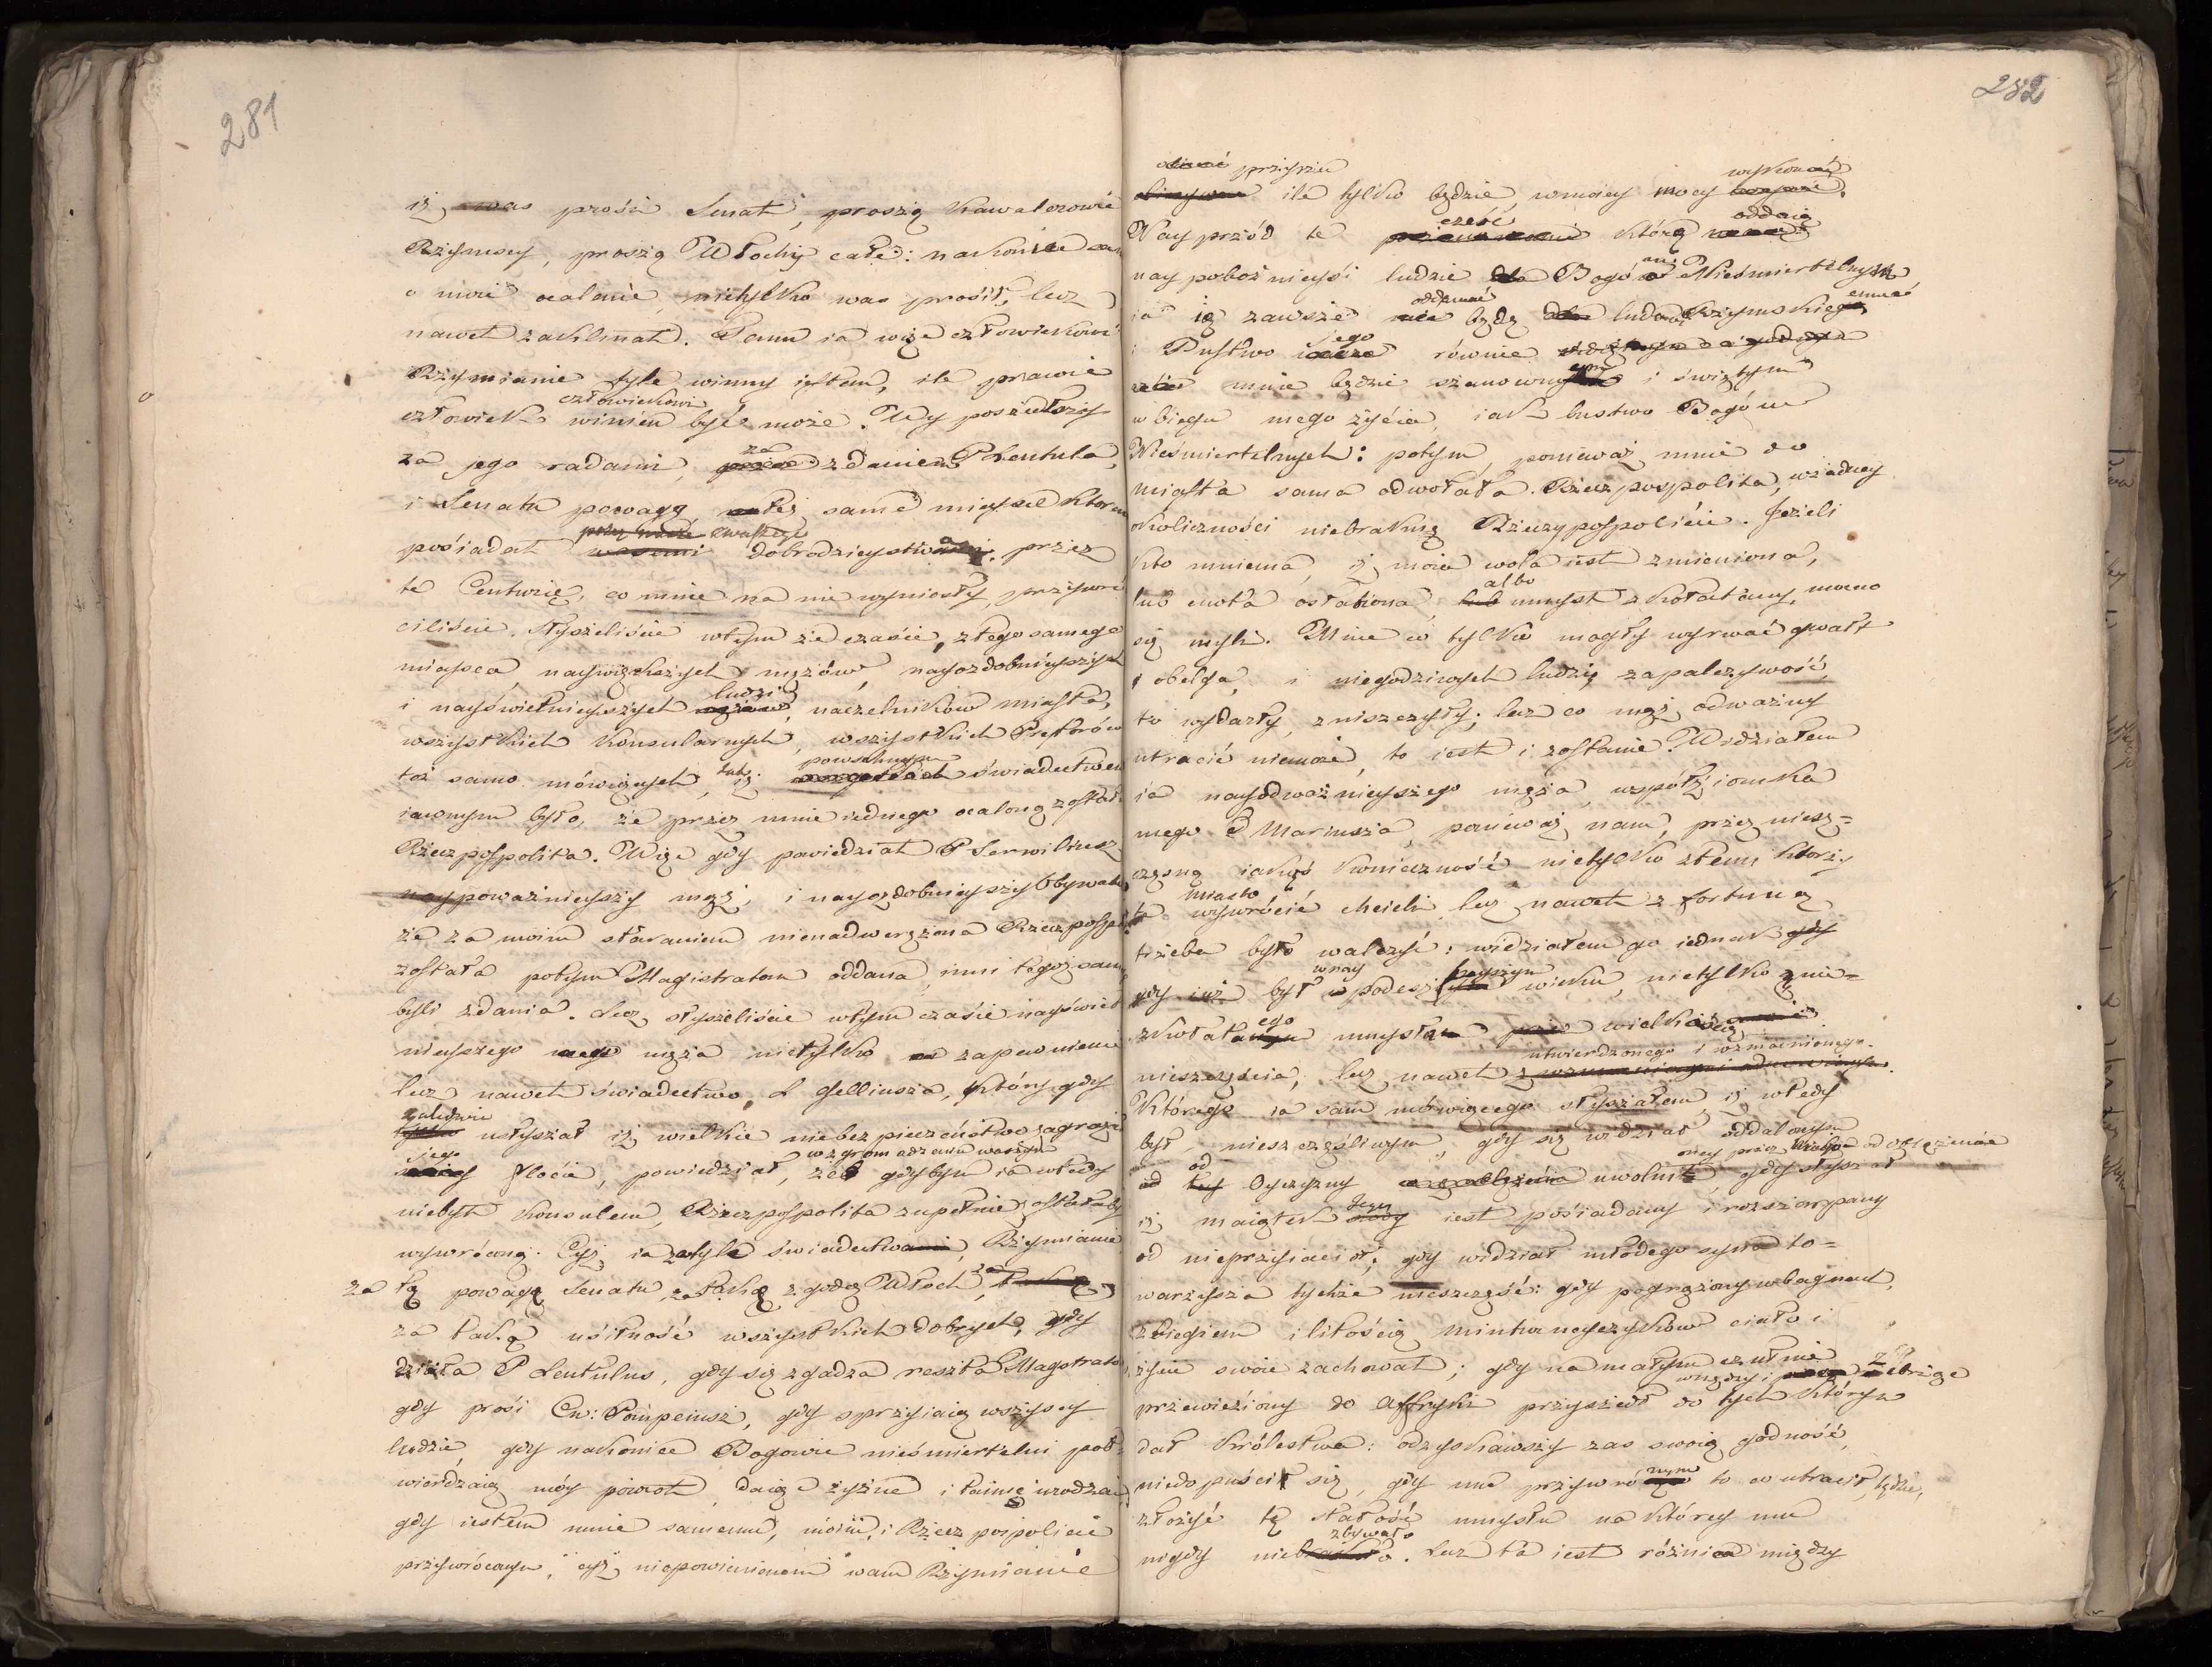 281
iż was prosi Senat, proszą Kawalerowie
Rzymscy, proszą Włochy całe: nakoniec
o moie ocalenie nietylko was prosił, lecz
nawet zaklinał. Temu ia więc człowiekowi
Rzymianie tyle winny iestem, ile prawie
człowiekowi
człowiek winien być może. Wy poszedłszy
za
za jego radami, zdaniem P Lentula,
i Senatu powagą też same mieysce które
posiadał dobrodzieystwa przez
te Centurię, co mnie na nie wyniosły, przywró
ciliście. Słyszeliście wtym że czasie, z tego samego
mieysca, naywiększych mężów, nayozdobnieyszych
ludzi
i nayświetnieyszych naczelników miasta,
wszystkich Konsularnych, wszystkich Pretorów
powszechnym
toż samo mówiących, iż świadectwem
iawnym było, że przez mnie iednego ocaloną został
Rzeczpospolita. Więc gdy powiedział P Serwiliusz
naypoważnieyszy mąż, i nayozdobnieyszy Obywatel
że za moim staraniem nienadwerężona Rzeczpospoli
została potym Magistratom oddana, inni tegoż sam
byli zdania. Lecz słyszeliście wtym czasie nayświet
nieyszego męża nietylko zapewnienie
lecz nawet świadectwo, L Gelliusza, który gdy
zaledwie
usłyszał iż wielkie niebezpieczeństwo zagroziło
jego wzgromadzeniu waszym
flocie, powiedział, że gdybym ia wtedy
niebył Konsulem, Rzeczpospolita zupełnie zostałaby
wywróconą. Cyż ia za tyle świadectw, Rzymianie
za tę powagę Senatu, za taką zgodę Włoch, za
za taką usilność wszystkich dobrych, gdy
działa P Lentulus, gdy się zgadza reszta Magistratów
gdy prosi Cn: Pompeiusz, gdy sprzyiaią wszyscy
ludzie, gdy nakoniec Bogowie nieśmiertelni pot-
wierdzaią móy powrót, daiąc żyzne i tainie urodzaie
gdy iestem mnie samemu, moim, i Rzeczpospolicie
przywrócony, cyż niepowinienem wam Rzymianie
282
przyrzec wykonać
ile tylko będzie wmoiey mocy
cześć oddaią
Nayprzód te którą
naypobożnieysi ludzie Bogóm Nieśmiertelnym
oddawać
ia ią zawsze będę ludowi Rzymskiemu
jego
Bustwo równie
mnie będzie szanownym i świętym
wbiegu mego życia, iak bustwo Bogów
Nieśmiertelnych: potym, ponieważ mnie do
miasta sama odwołała Rzeczpospolita, wżadney
okoliczności niebraknę Rzeczypospolicie. Jeżeli
kto mniema, iż moia wola iest zmieniona,
albo
lub cnota osłabiona umysł zkołatany, mocno
się myli. Mnie co tylko mogły wyrwać gwałt
i obelga, i niegodziwych ludzi zapalczywość,
to wydarły, zniszczyły; lecz co mąż odważny
utracić niemoże, to iest i zostanie. Widziałem
ia nayodważnieyszego męża, współziomka
mego C Mariusza, ponieważ nam, przez niesz=
częsną iakąś konieczność nietylko z temi którzy
miasto
wywrócić chcieli, lecz nawet z fortuną
trzeba było walczyć: widziałem go iednak gdy
wnay
był podeszłszym wieku, nietylko znie=
zkołatanego umysłu wielkością
utwierdzonego i wzmocnionego.
nieszczęścia, lecz nawet
Którego ia sam mówiącego słyszałem, iż wtedy
był nieszczęśliwym, gdy się widział oddalonym
od oney przez niego od oblężenia
od Oyczyzny uwolnił, gdy słyszał
jego
iż maiątek iest posiadany i rozszarpany
od nieprzyiaciół; gdy widział młodego syna to=
warzysza tychże nieszczęść: gdy pogrążony wbagnach,
zbiegiem i litością Minturneyczyków ciało i
życie swoie zachował; gdy na małym czułnie
przewieziony do Affryki przyszedł do tych którym
dał Królestwa: odzyskawszy zas swoią godność,
niedopuścił się, gdy mu przywró to co utracił, będzie,
złożyć tę stałość umysłu na którey mu
zbywało
nigdy nie. Lecz ta iest różnica między